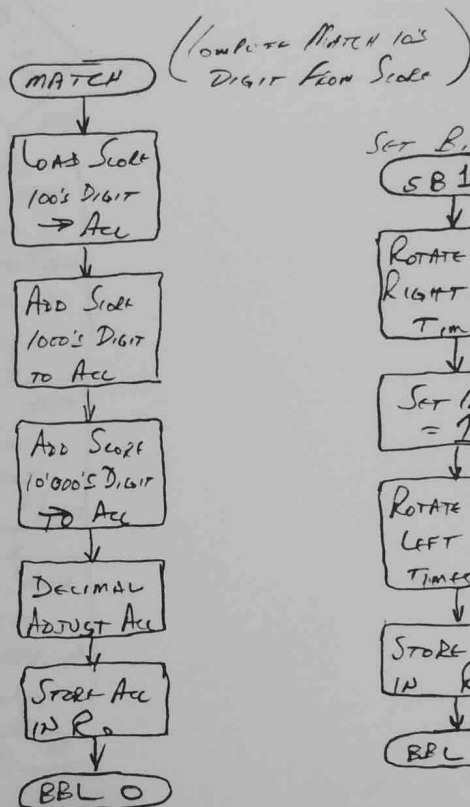 (COMPUTE MATCH 10's
DIGIT FROM SCORE)
MATCH
LOAD SCORE
100's DIGIT
→ ACC
ADD SCORE
1000's DIGIT
TO ACC
ADD SCORE
10'000's DIGIT
→ TO ACC
DECIMAL
ADJUST ACC
STORE ACC
IN R0
BBL 0
SET
SB1
ROTATE
RIGHT
SET
= 1
ROTATE
LEFT
TIMES
STORE
IN
BBL